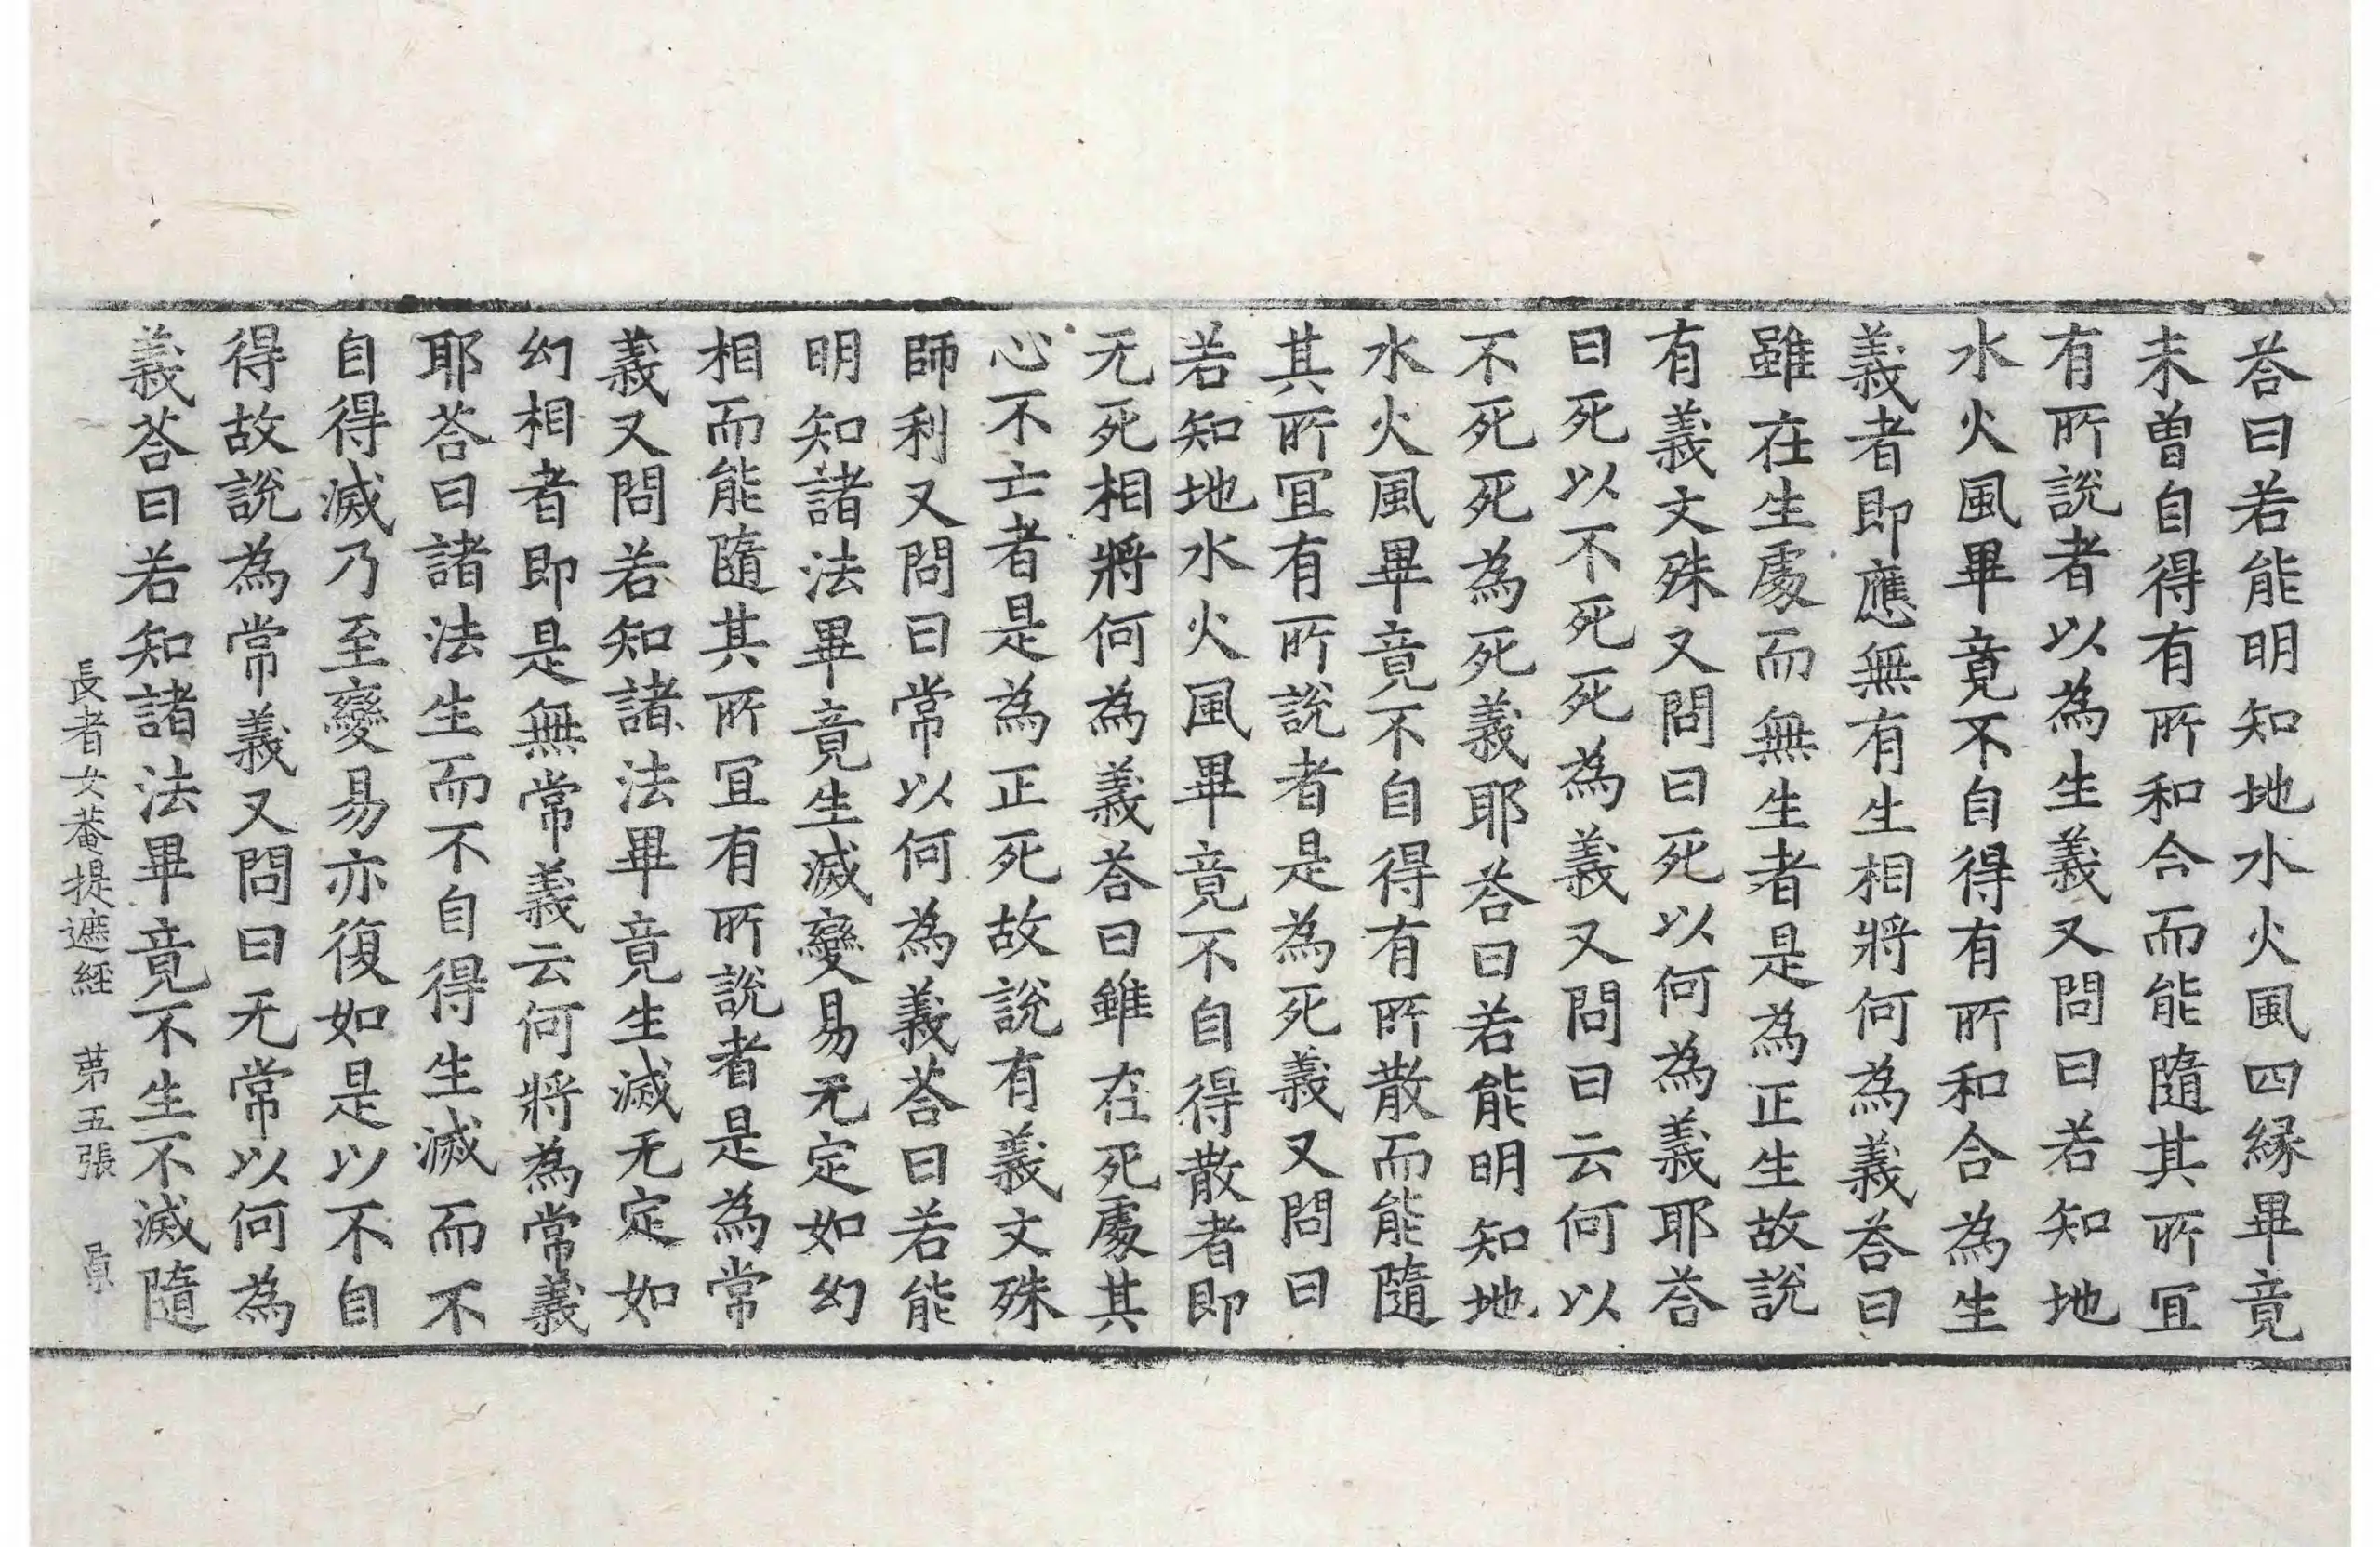 荅曰若能明知地水火風四縁畢竟
未曾自得有所和合而能隨其所冝
有所說者以為生義又問曰若知地
水火風畢竟不自得有所和合為生
義者即應無有生相將何為義荅曰
雖在生處而無生者是為正生故說
有義文殊又問曰死以何為義耶荅
曰死以不死死為義又問曰云何以
不死死為死義耶荅曰若能明知地
水火風畢竟不自得有所散而能隨
其所冝有所說者是為死義又問曰
若知地水火風畢竟不自得散者即
无死相將何為義荅曰雖在死處其
心不亡者是為正死故說有義文殊
師利又問曰常以何為義荅曰若能
明知諸法畢竟生滅變易无定如幻
相而能隨其所冝有所說者是為常
義又問若知諸法畢竟生滅无定如
幻相者即是無常義云何將為常義
耶荅曰諸法生而不自得生滅而不
自得滅乃至變易亦復如是以不自
得故說為常義又問曰无常以何為
義荅曰若知諸法畢竟不生不滅隨
長者女菴提遮經 苐五張